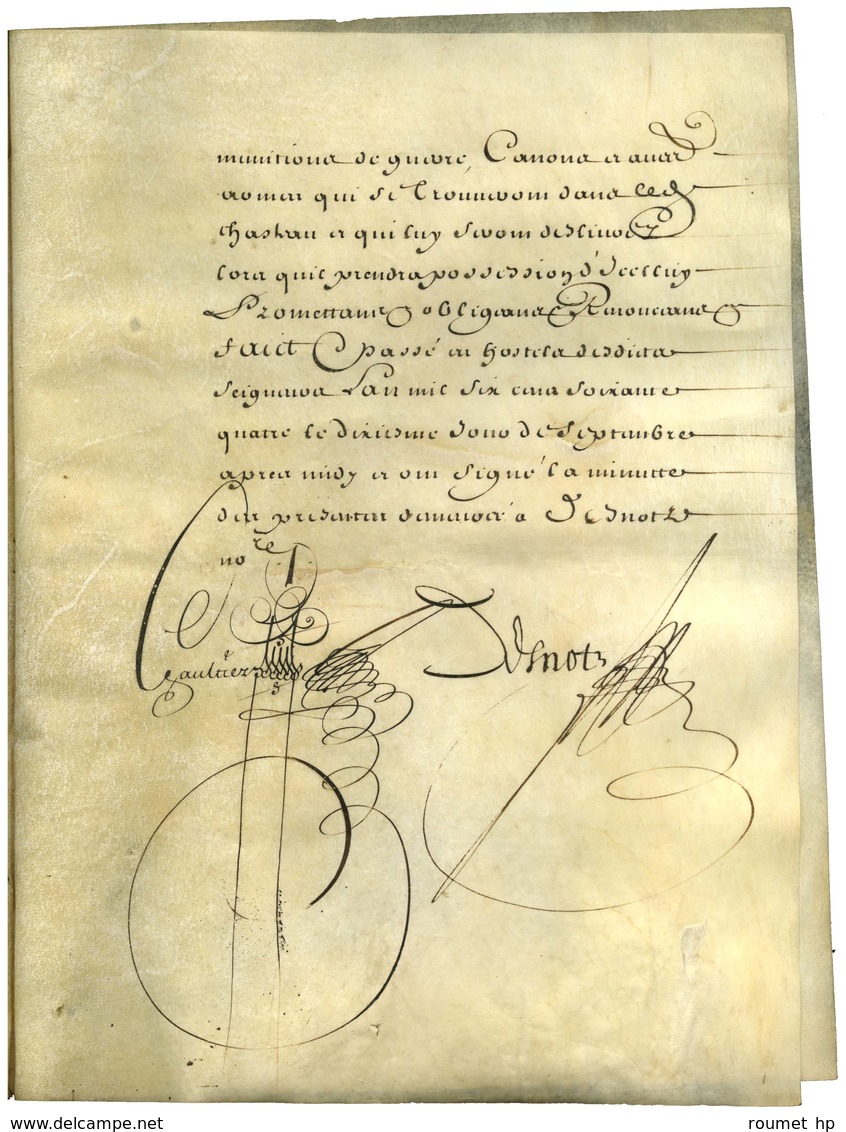 munitions de guerre, Canons et autres
armes qui se trouveront dans led
chasteau et qui luy seront deslivrez
lors quil prendra possession d'Icelluy
Promettans obligeans Renonceans
faict & passé en hostels desdicts
seigneurs Lan mil six cens soixante
quatre le dixiesme Jour de Septembre
apres midy et ont signé la minutte
des presentes demeuré a Desnotz
nore
Gaultier
Desnotz
www.delcampe.net
roumet hp